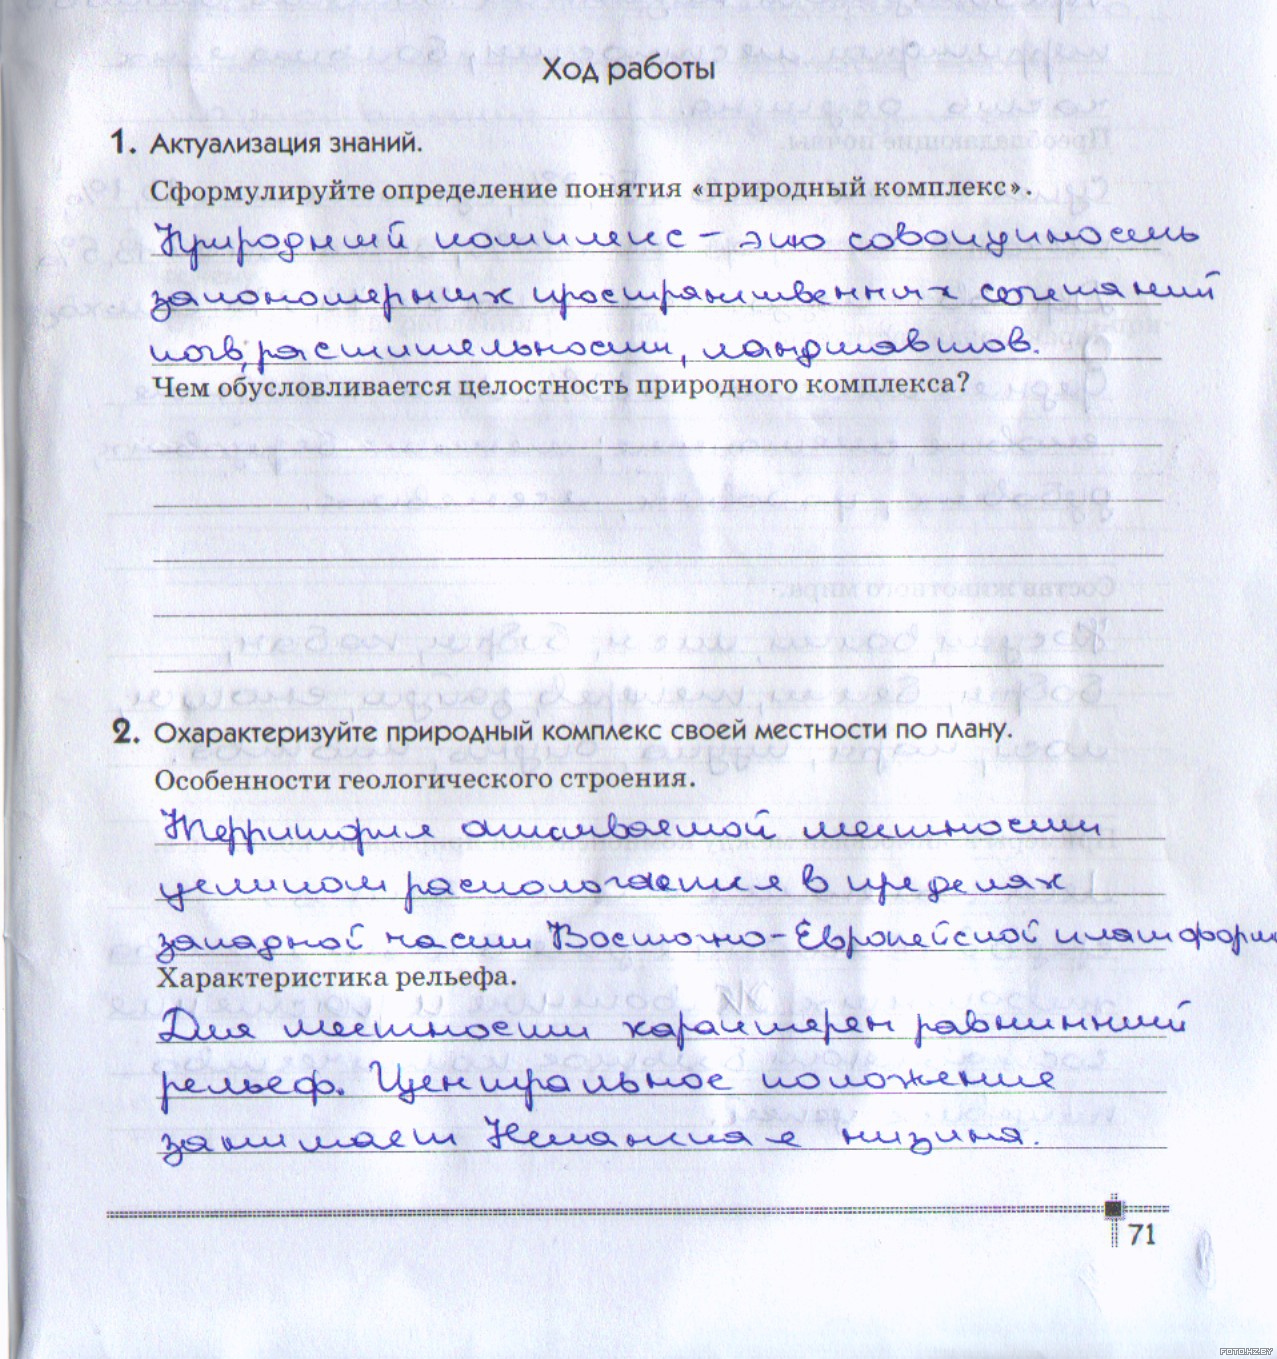 Ход работы
1. Актуализация знаний.
Сформулируйте определение понятия «природный комплекс».
Природный комплекс - это совокупность
закономерных пространственных сочетаний
почв, растительности, ландшафтов.
Чем обусловливается целостность природного комплекса?
2. Охарактеризуйте природный комплекс своей местности по плану.
Особенности геологического строения.
Территория описываемой местности
целиком располагается в пределах
западной части Восточно-Европейской платформы
Характеристика рельефа.
Для местности характерен равнинный
рельеф. Центральное положение
занимает Неманская низина.
71
FOTO.HZ.BY